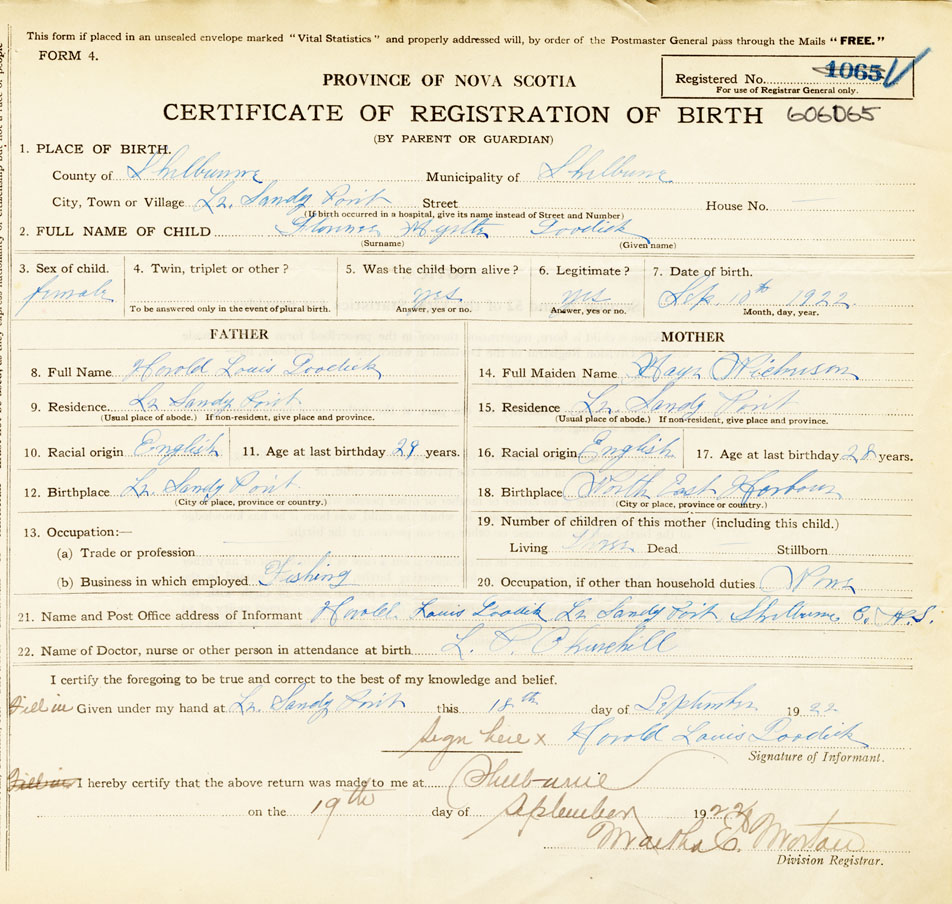 This form if placed in an unsealed envelope marked "Vital Statistics" and properly addressed will, by order of the Postmaster General pass through the Mails "FREE."
FORM 4.
PROVINCE OF NOVA SCOTIA
Registered No. 1065
For use of Registrar General only.
CERTIFICATE OF REGISTRATION OF BIRTH 606065
(BY PARENT OR GUARDIAN)
1. PLACE OF BIRTH.
County of Shelburne Municipality of Shelburne
City, Town or Village Lr. Sandy Point Street House No. —
(If birth occurred in a hospital, give its name instead of Street and Number)
2. FULL NAME OF CHILD
(Surname) (Given name)
3. Sex of child. 4. Twin, triplet or other? 5. Was the child born alive? 6. Legitimate? 7. Date of birth.
female yes yes Sep. 10th 1922
To be answered only in the event of plural birth. Answer, yes or no. Answer, yes or no. Month, day, year.
FATHER MOTHER
8. Full Name Horold Louis
14. Full Maiden Name
9. Residence. Lr Sandy Point
15. Residence Lr. Sandy Point
(Usual place of abode.) If non-resident, give place and province. (Usual place of abode.) If non-resident, give place and province.
10. Racial origin English 11. Age at last birthday 29 years.
16. Racial origin English 17. Age at last birthday 28 years.
12. Birthplace Lr. Sandy Point
18. Birthplace North East Harbour
(City or place, province or country.) (City or place, province or country.)
13. Occupation:—
19. Number of children of this mother (including this child.)
(a) Trade or profession
Living Three Dead — Stillborn
(b) Business in which employed Fishing
20. Occupation, if other than household duties None
21. Name and Post Office address of Informant Horold Louis Lr Sandy Point Shelburne Co. N.S.
22. Name of Doctor, nurse or other person in attendance at birth L. P. Churchill
I certify the foregoing to be true and correct to the best of my knowledge and belief.
Fill in Given under my hand at Lr. Sandy Point this 18th day of September 1922
Sign here x Horold Louis
Signature of Informant.
Fill in I hereby certify that the above return was made to me at Shelburne
on the 19th day of September 1922
Martha E. Morton
Division Registrar.